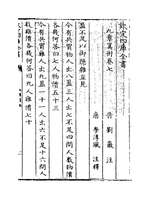 欽定四庫全書
九章算術卷七
晉 劉徽 注
唐 李淳風 注釋
盈不足以御隱雜互見
今有共買物人出八盈三人出七不足四問人數物價
各幾何荅曰七人物價五十三
今有共買雞人出九盈一十一人出六不足十六問人
數雞價各幾何荅曰九人雞價七十